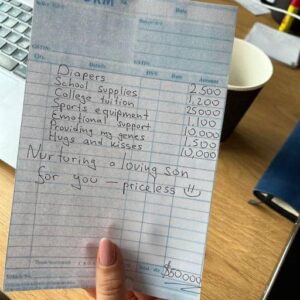 Details
Rate
Amount
Diapers 2,500
School supplies 1,200
College tuition 25000
Sports equipment 1,100
Emotional support 10,000
Providing my genes 1,500
Hugs and kisses 10,000
Nurturing a loving son
for you — priceless
$50000